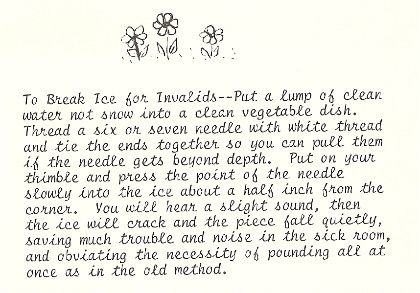 To Break Ice for Invalids--Put a lump of clean
water not snow into a clean vegetable dish.
Thread a six or seven needle with white thread
and tie the ends together so you can pull them
if the needle gets beyond depth.  Put on your
thimble and press the point of the needle
slowly into the ice about a half inch from the
corner.  You will hear a slight sound, then
the ice will crack and the piece fall quietly,
saving much trouble and noise in the sick room,
and obviating the necessity of pounding all at
once as in the old method.